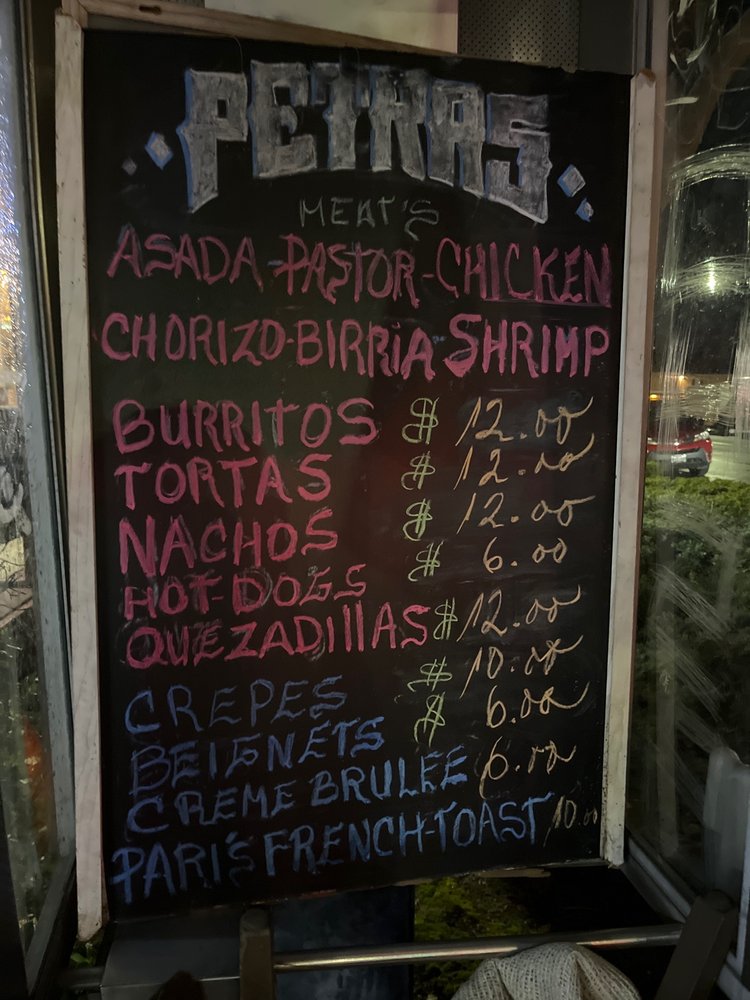 PETRAS
MEAT'S
ASADA-PASTOR-CHICKEN
CHORIZO-BIRRiA-SHRIMP
BURRITOS $ 12.00
TORTAS $ 12.00
NACHOS $ 12.00
HOT-DOGS $ 6.00
QUEZADILLAS $ 12.00
CREPES $ 10.00
BEIGNETS $ 6.00
CREME BRULEE 6.00
PARI'S FRENCH-TOAST 10.00